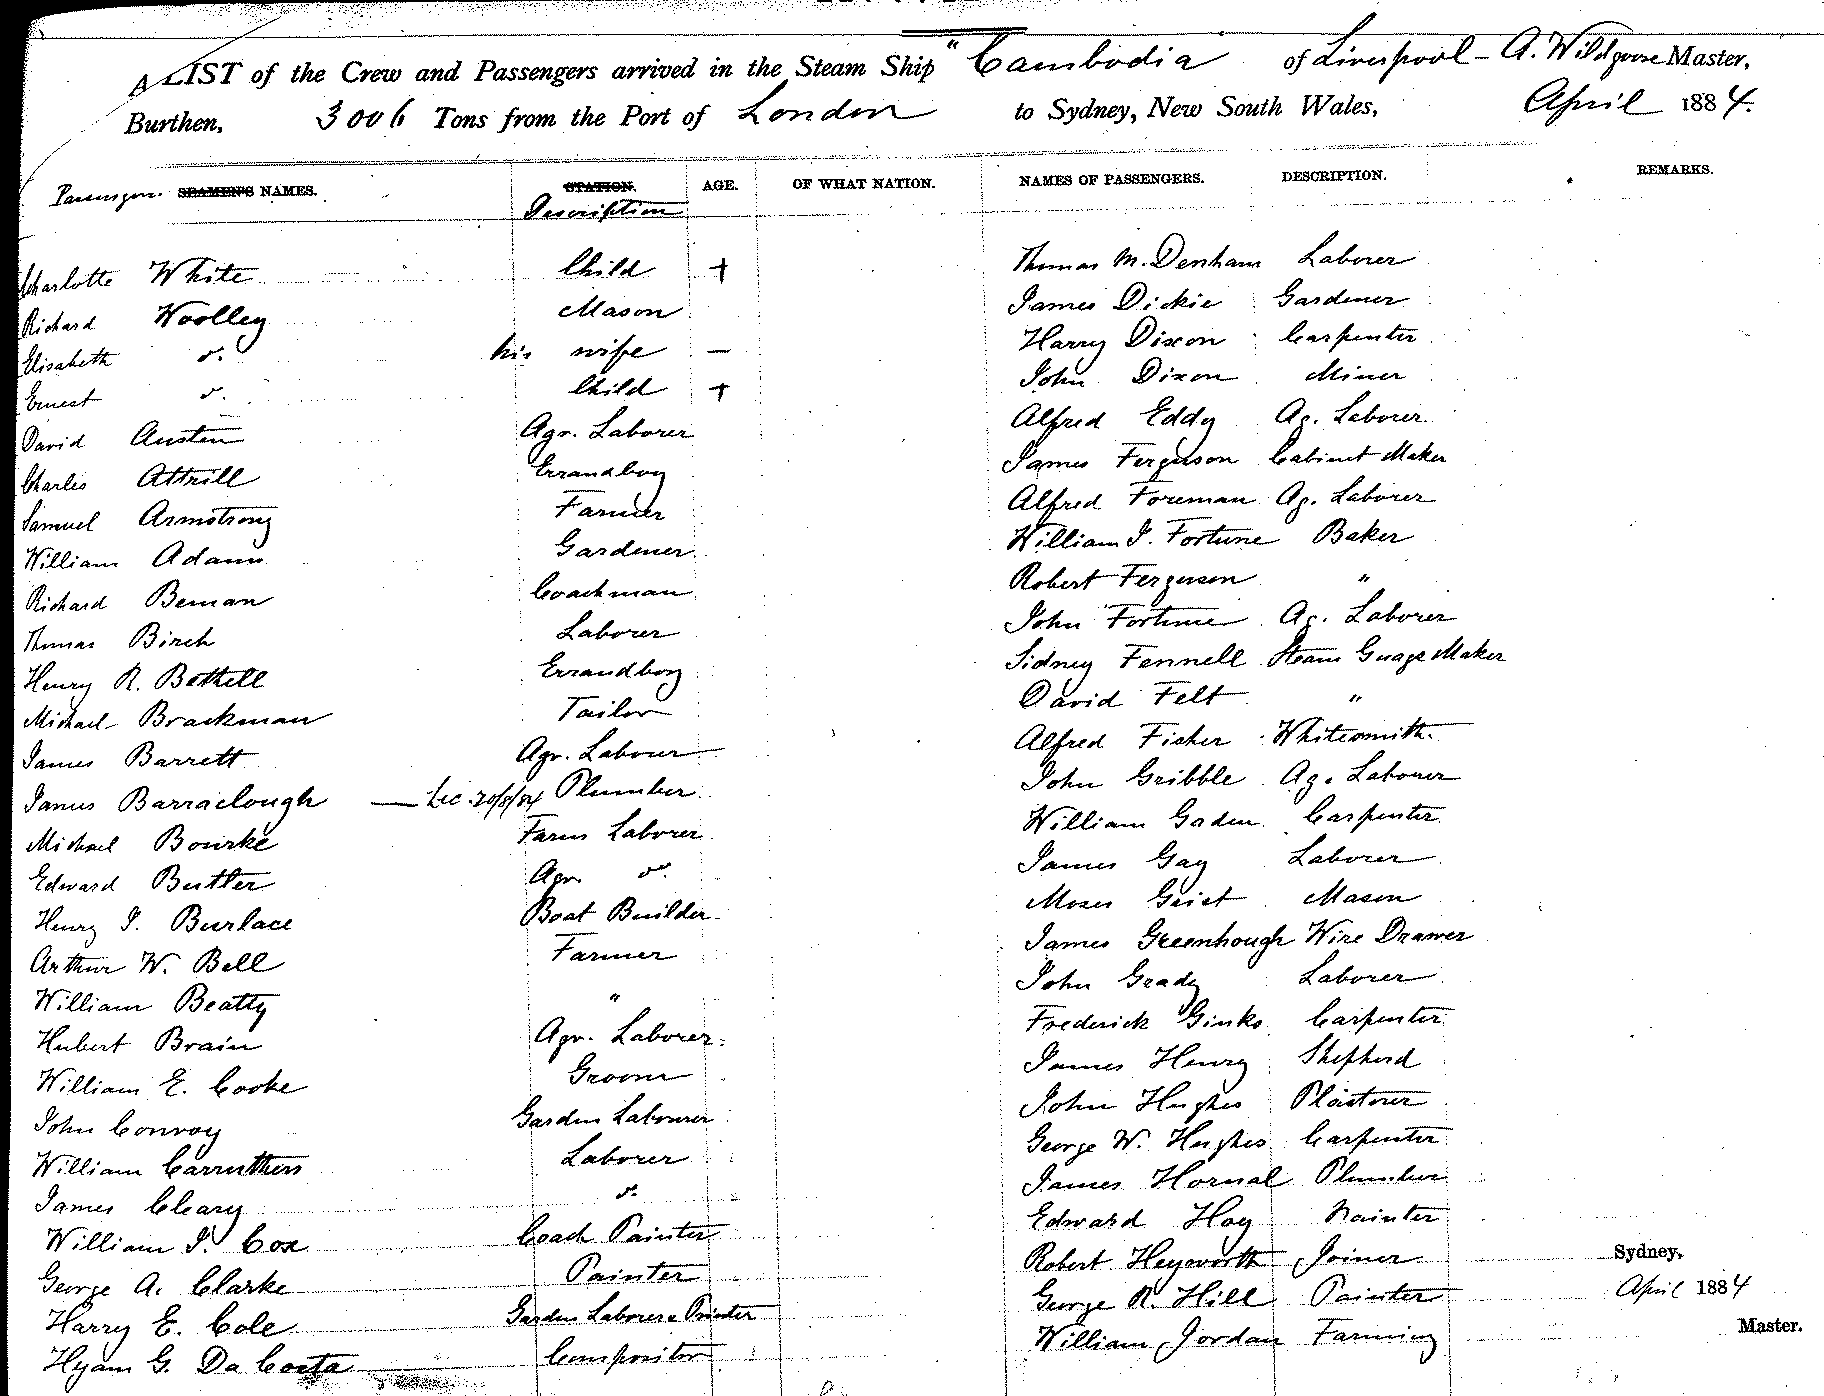 A LIST of the Crew and Passengers arrived in the Steam Ship "Cambodia" of Liverpool - A. Wildgoose Master,
Burthen, 3006 Tons from the Port of London to Sydney, New South Wales, April 1884.
Passengers SEAMEN'S NAMES. STATION. AGE. OF WHAT NATION. NAMES OF PASSENGERS. DESCRIPTION. REMARKS.
Description
Charlotte White Child + Thomas M. Denham Laborer
Richard Woolley Mason James Dickie Gardener
Elisabeth do. his wife — Harry Dixon Carpenter
Ernest do. Child + John Dixon Miner
David Austen Agr. Laborer Alfred Eddy Ag. Laborer
Charles Attrill Errandboy James Ferguson Cabinet Maker
Samuel Armstrong Farmer Alfred Foreman Ag. Laborer
William Adams Gardener William J. Fortune Baker
Richard Beman Coachman Robert Ferguson "
Thomas Birch Laborer John Fortune Ag. Laborer
Henry R. Bothell Errandboy Sidney Fennell Steam Guage Maker
Michael Brackman Tailor David Felt "
James Barrett Agr. Laborer Alfred Fisher Whitesmith
James Barraclough — Lic. Plumber John Gribble Ag. Laborer
Michael Bourke Farm Laborer William Gaden Carpenter
Edward Butler Agr. do. James Gay Laborer
Henry J. Burlace Boat Builder Moses Geist Mason
Arthur W. Bell Farmer James Greenhough Wire Drawer
William Beatty " John Grady Laborer
Hubert Brain Agr. Laborer Frederick Ginks Carpenter
William E. Cooke Groom James Henry Shepherd
John Conroy Garden Labourer John Hughes Plasterer
William Carruthers Laborer George W. Hughes Carpenter
James Cleary do. James Hornal Plumber
William J. Cox Coach Painter Edward Hoy Painter
George A. Clarke Painter Robert Heyworth Joiner Sydney,
Harry E. Cole Garden Laborer & Painter George R. Hill Painter April 1884
Hyam G. Da Costa Compositor William Jordan Farming Master.